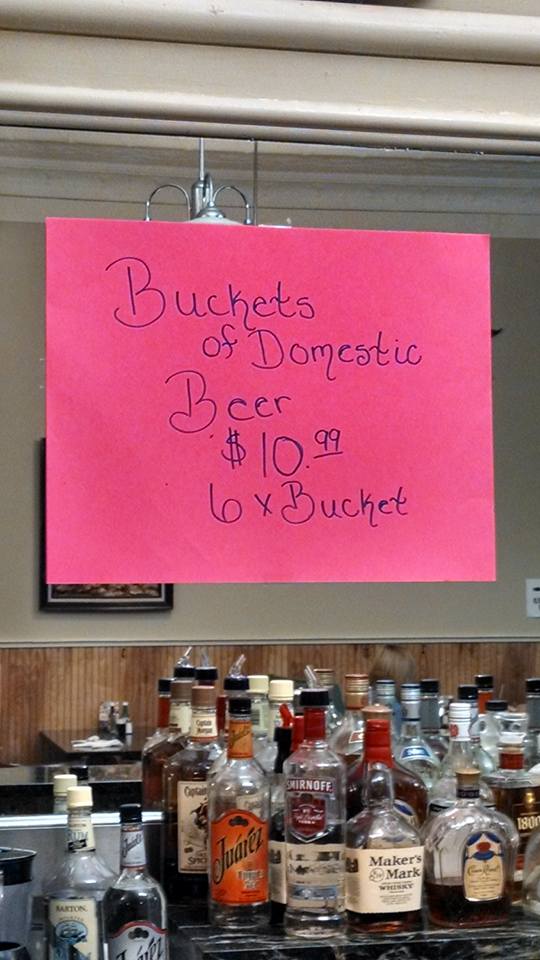 Buckets
of Domestic
Beer
$10.99
6 x Bucket
SMIRNOFF
Juárez
Maker's
Mark
WHISKY
BARTON
Juárez
Captain
Crown Royal
1800